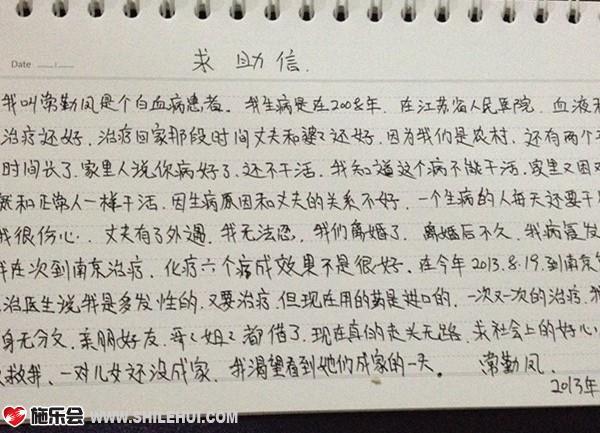 Date
求助信.
我叫常勤凤是个白血病患者。我生病是在2008年.在江苏省人民医院.血液科
治疗还好.治疗回家那段时间丈夫和婆婆还好.因为我们是农村.还有两个
时间长了.家里人说你病好了.还不干活.我知道这个病不能干活.家里又困难
和正常人一样干活.因生病原因和丈夫的关系不好.一个生病的人每天还要干
我很伤心.丈夫有了外遇.我无法忍.我们离婚了.离婚后不久.我病复发
在次到南京治疗.化疗六个疗成效果不是很好.在今年2013.8.19.到南京
治医生说我是多发性的.又要治疗.但现在用的药是进口的.一次又一次的治疗.我
身无分文.亲朋好友.哥く姐く都借了.现在真的走头无路.求社会上的好心
救我.一对儿女还没成家.我渴望看到她们成家的一天。 常勤凤.
2013年
施乐会 WWW.SHILEHUI.COM